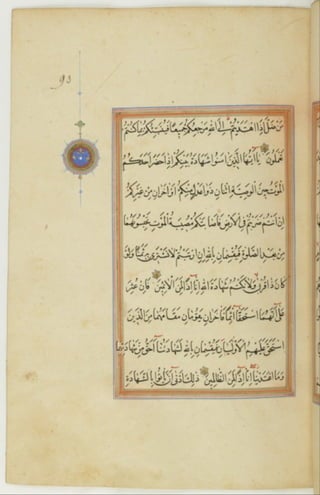 93
من ضل اذا اهتديتم الى الله مرجعكم جميعا فينبئكم بما كنتم
تعملون يا ايها الذين امنوا شهادة بينكم اذا حضر احدكم
الموت حين الوصية اثنان ذوا عدل منكم او اخران من غيركم
ان انتم ضربتم في الارض فاصابتكم مصيبة الموت تحبسونهما
من بعد الصلوة فيقسمان بالله ان ارتبتم لا نشتري به ثمنا ولو
كان ذا قربى ولا نكتم شهادة الله انا اذا لمن الاثمين فان عثر
على انهما استحقا اثما فاخران يقومان مقامهما من الذين
استحق عليهم الاوليان فيقسمان بالله لشهادتنا احق من شهادتهما
وما اعتدينا انا اذا لمن الظالمين ذلك ادنى ان ياتوا بالشهادة